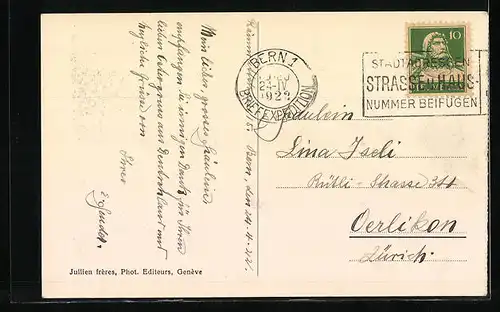 Mein liebes, grosses Fräulein!
empfangen Sie innigen Dank für Ihren
lieben Ostergruss aus Deutschland mit
herzliche Grüsse von
Ihrer
Bern, den 24.4.22.
BERN 1
24.IV
1922
BRIEFEXPEDITION
10
STADTADRESSEN
STRASSE u. HAUS-
NUMMER BEIFÜGEN
Fräulein
Lina Iseli
Rütli-Strasse 311
Oerlikon
Zürich.
Jullien frères, Phot. Editeurs, Genève